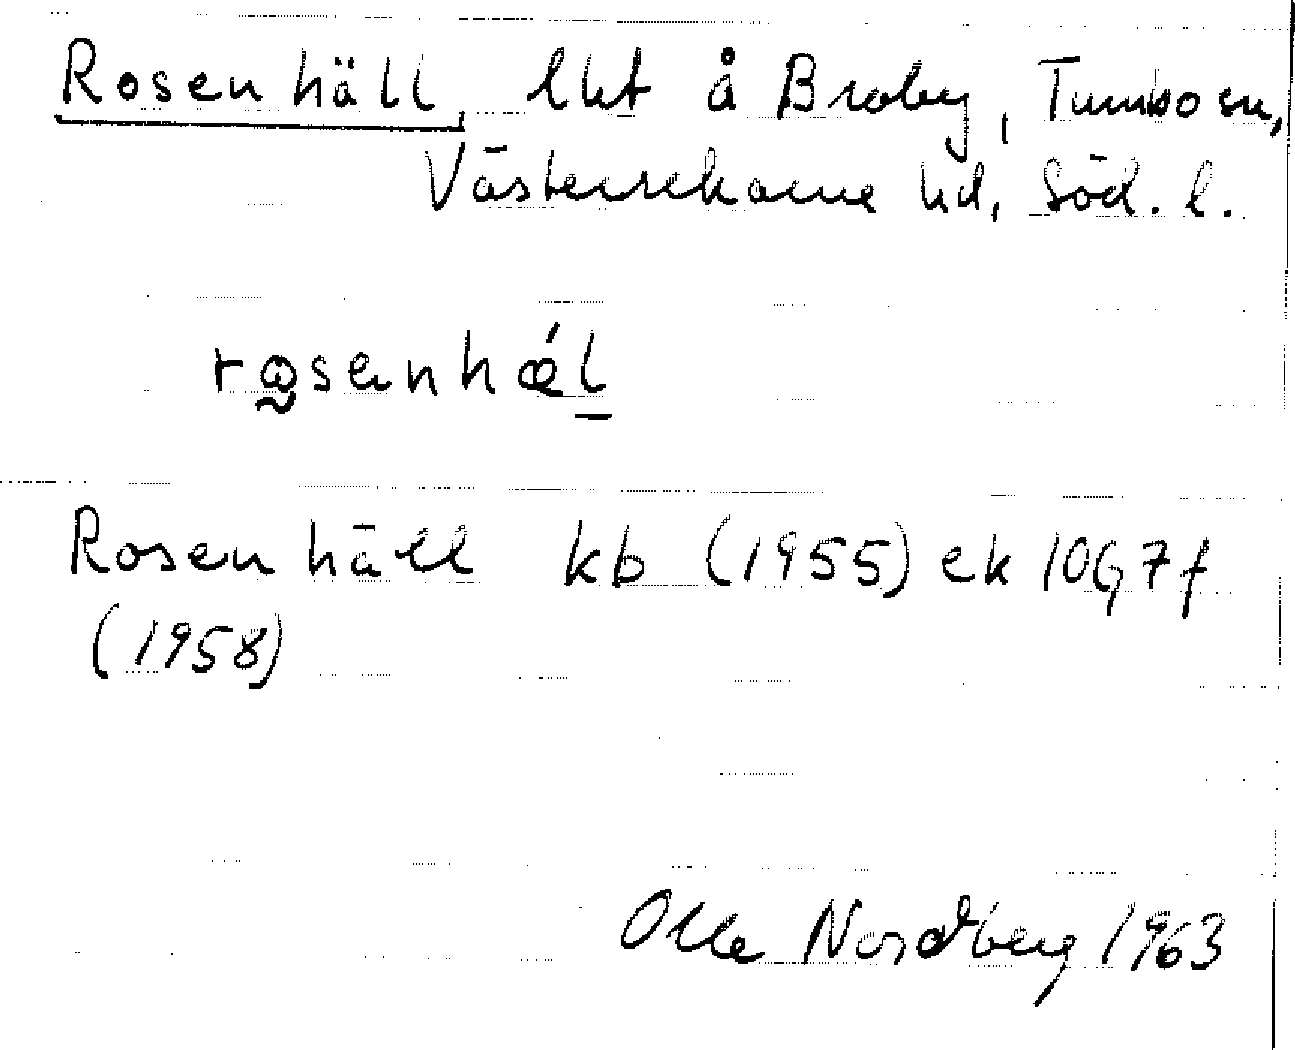 Rosenhäll, lht å Broby, Tumbo sn,
Västerrekarne hd, Söd. l.
rosenhǽl
Rosenhäll kb (1955) ek 10G7f
(1958)
Olle Nordberg 1963